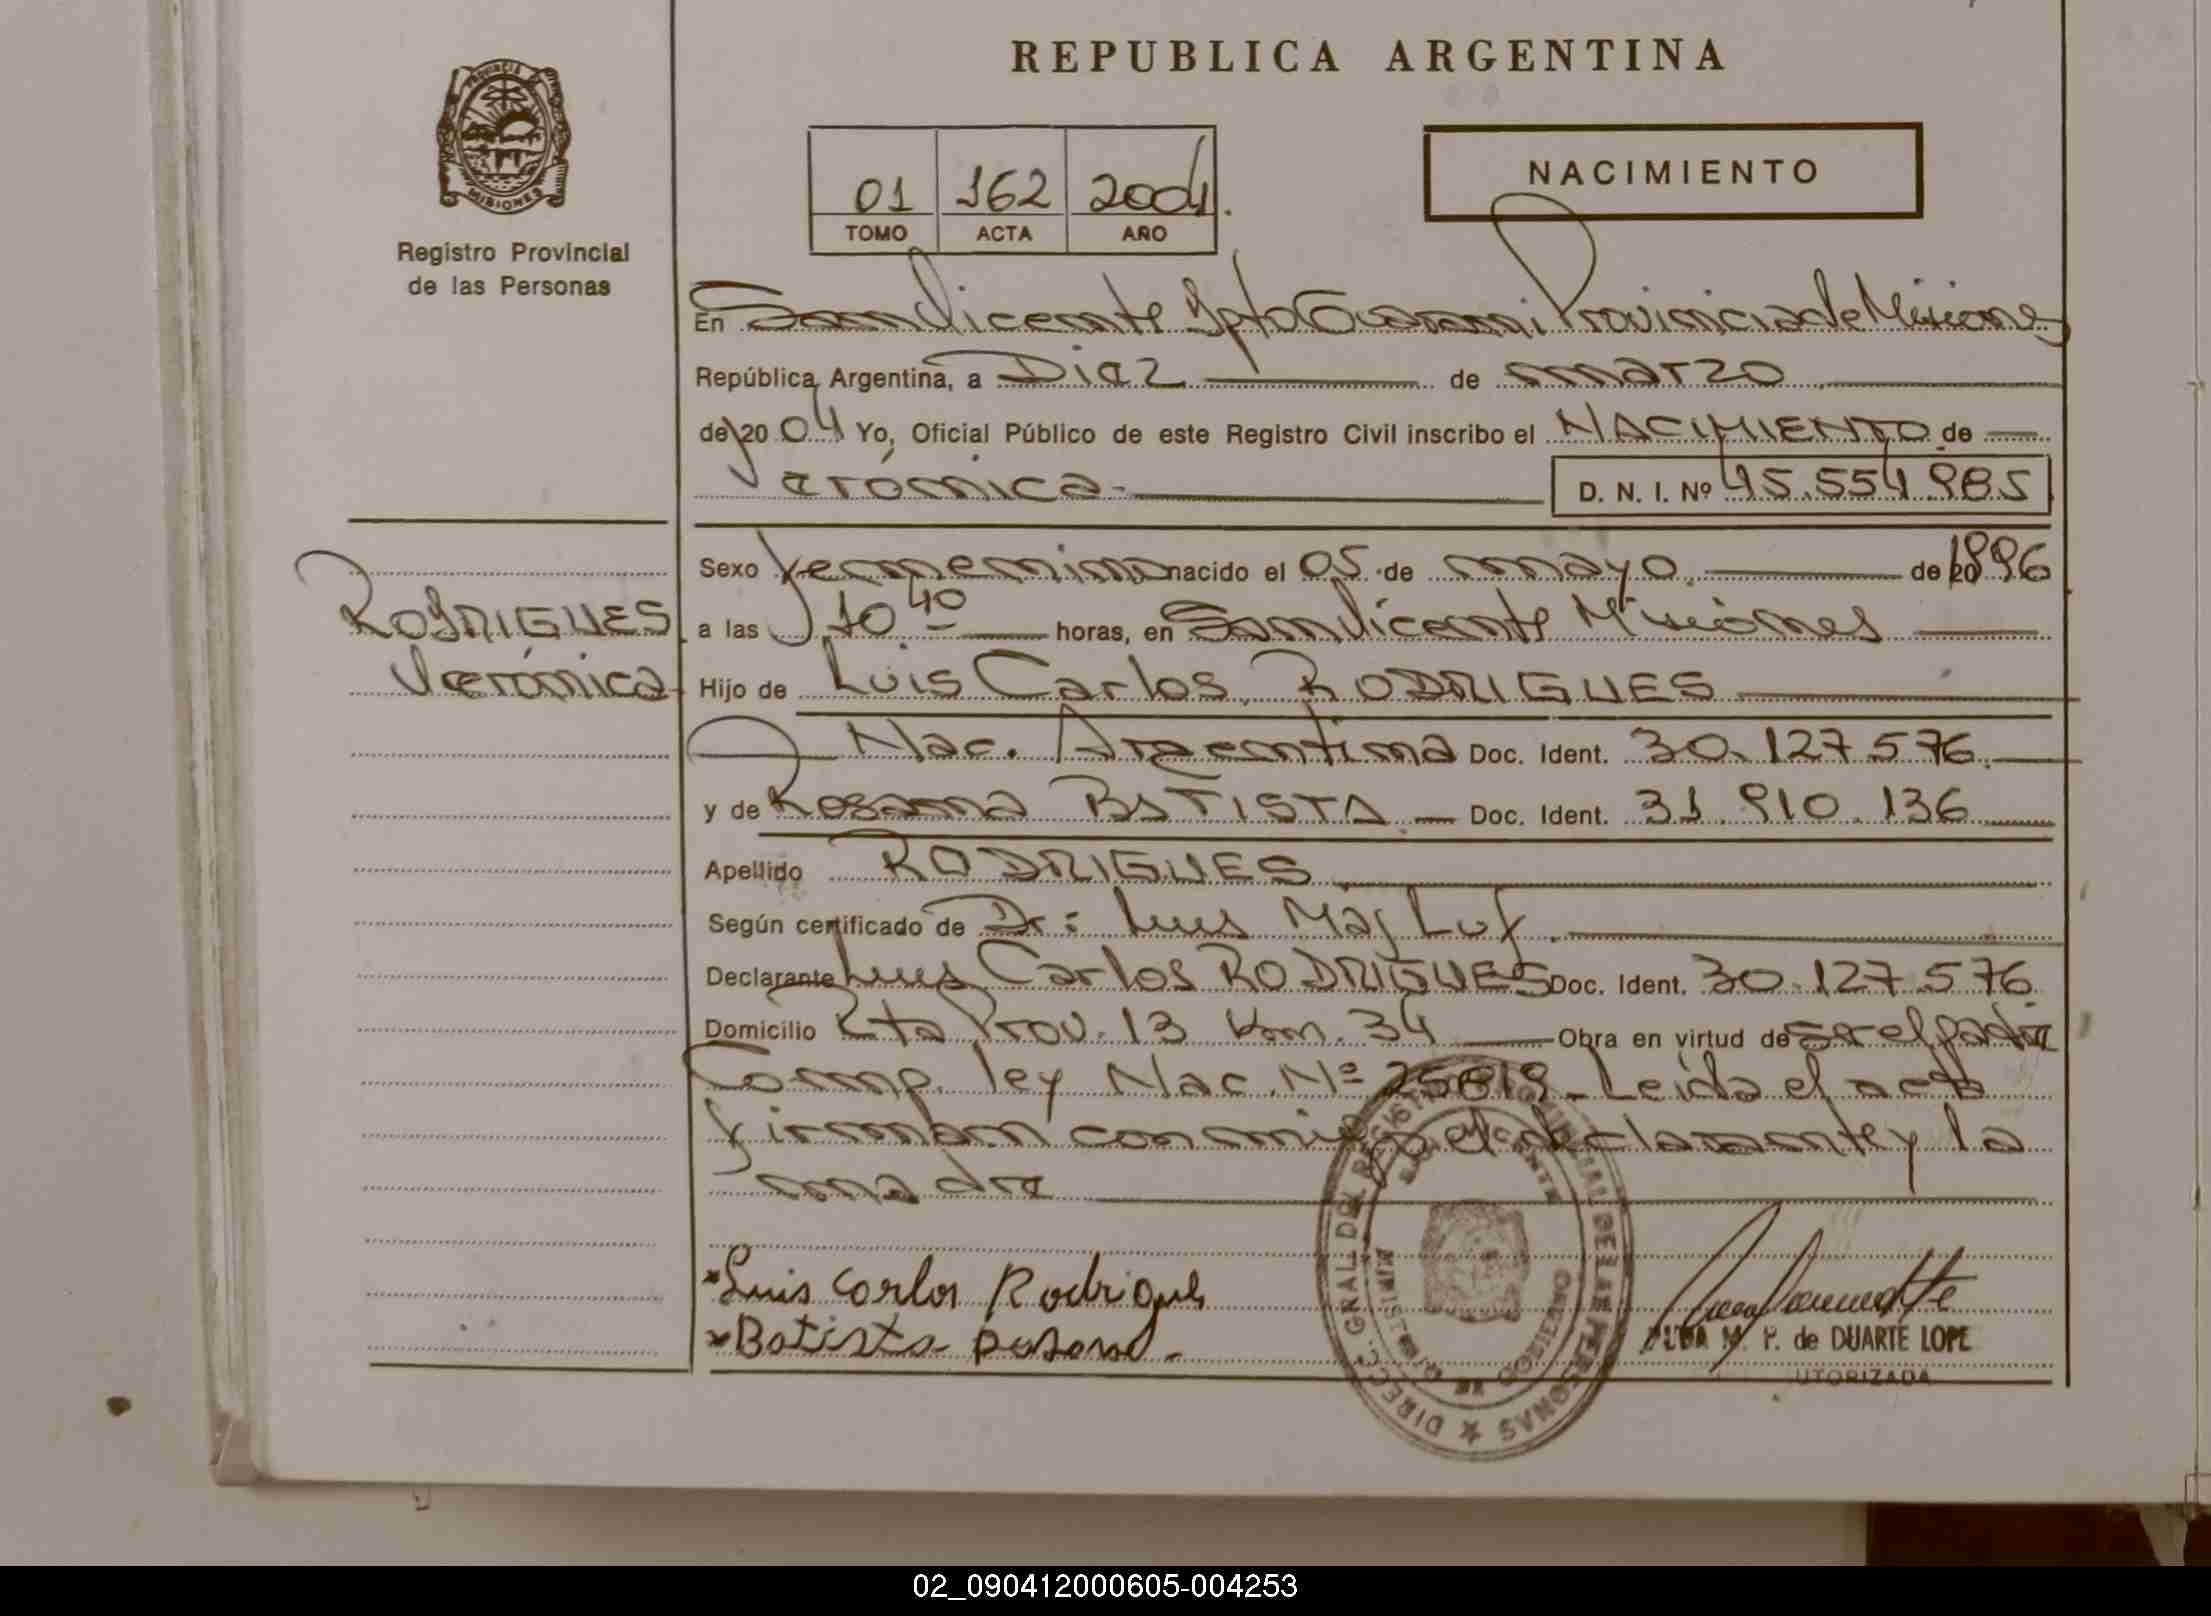 REPUBLICA ARGENTINA
PROVINCIA DE MISIONES
Registro Provincial
de las Personas
01 162 2004.
TOMO ACTA AÑO
NACIMIENTO
En San Vicente Dpto Guaraní Provincia de Misiones
República Argentina, a Diez de marzo
de 2004 Yo, Oficial Público de este Registro Civil inscribo el NACIMIENTO de
Verónica.- D. N. I. Nº 45.554.985
Sexo femenino nacido el 05 de mayo de 1996
RODRIGUES
Verónica
a las 10 40 horas, en San Vicente Misiones
Hijo de Luis Carlos RODRIGUES
Nac. Argentina Doc. Ident. 30.127.576.
y de Rosana BATISTA.- Doc. Ident. 31.910.136
Apellido RODRIGUES
Según certificado de Dr: Luis Maj Luf.
Declarante Luis Carlos RODRIGUES Doc. Ident. 30.127.576
Domicilio Rta Prov. 13 Km. 34 Obra en virtud de ser el padre
Comp. ley Nac. Nº 25819.- Leída el acta
firman conmigo el declarante y la
madre
*Luis Carlos Rodrigues
*Batista Rosana.-
DIRECC. GRAL DEL REGISTRO PROVINCIAL DE LAS PERSONAS
MINISTERIO DE GOBIERNO
M. P. de DUARTE LOPE
UTORIZADA
02_090412000605-004253